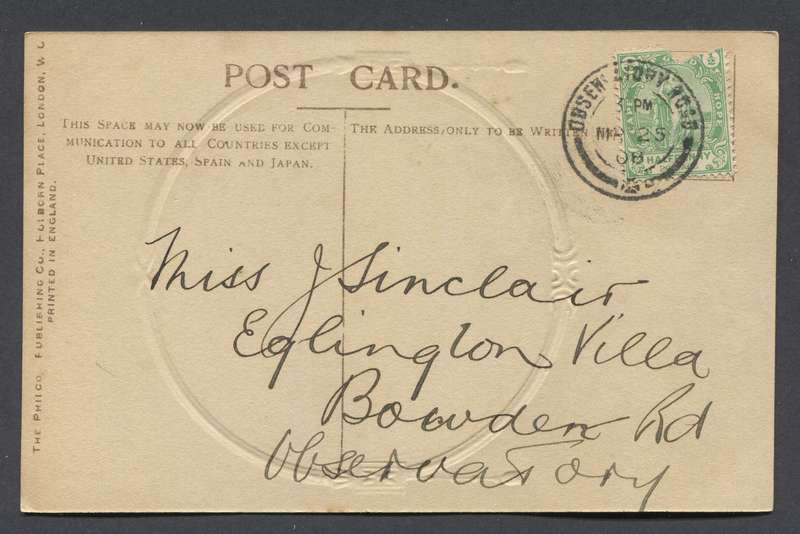 POST CARD.
THIS SPACE MAY NOW BE USED FOR COM-
MUNICATION TO ALL COUNTRIES EXCEPT
UNITED STATES, SPAIN AND JAPAN.
THE ADDRESS ONLY TO BE WRITTEN
OBSERVATORY ROAD
3 PM
25
08
HOPE
HALF
Miss J Sinclair
Eglington Villa
Bowden Rd
Observatory
THE PHILCO PUBLISHING CO., HOLBORN PLACE, LONDON, W C
PRINTED IN ENGLAND.